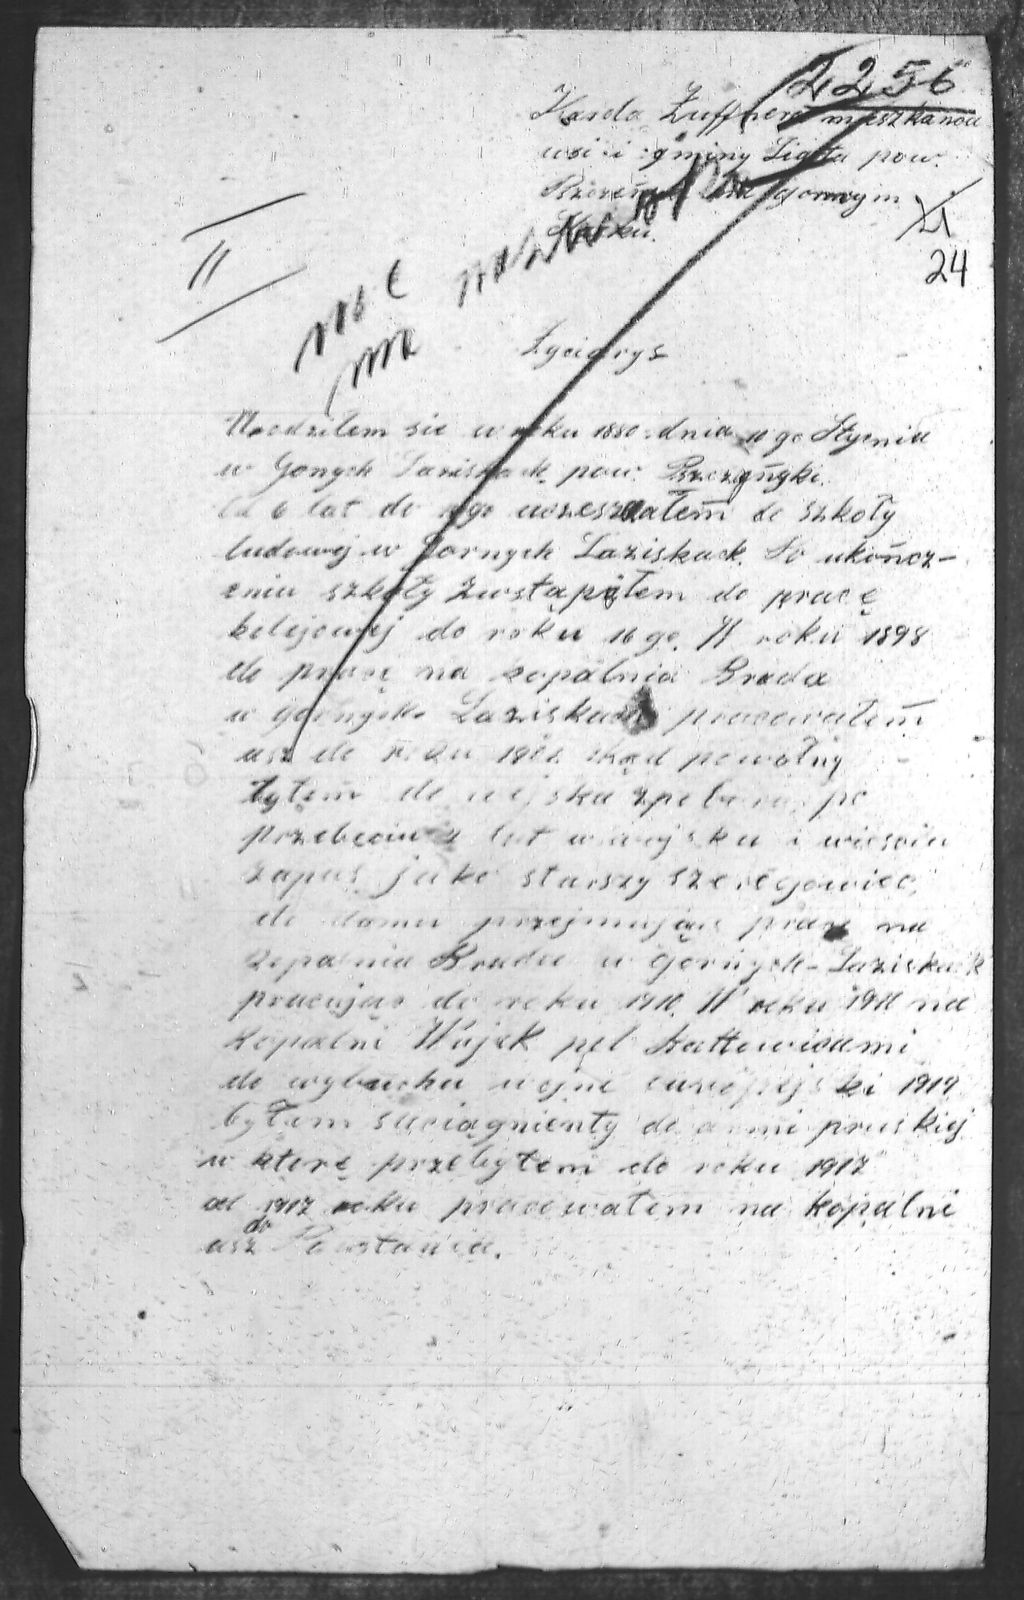 2256
Karola Zuffnera mieszkańca
wsi i gminy Ligota pow.
górnym
21
24
II
nie ma nazwiska
Życiorys
Urodziłem sie w roku 1880 dnia 11 go Stycnia
w Gonych Laziskack pow. Pszczyńyki.
6 lat do uczeszczałem do szkoły
ludowej w Gornych Laziskack. Po ukończ-
eniu szkoły zwstąpiłem do pracę
kolejowej do roku 16 go. W roku 1898
do pracę na kopalnia Brada
w górnych Laziskach pracowałem
asz do roku skąd powołny
byłem do wojska po
przebeciu 2 lat w wojsku i
zapas jako starszy szeregowiec,
do domu przejmując prace na
kopalnia Brada w Gornych-Laziskack
pracując do roku 1911. W roku 1911 na
kopalni Wujek pod Kattowicami
do wybuchu wojne europejski 1914
byłem saciągnienty do armi pruskiej
w którę przebyłem do roku 1917
od 1917 roku pracowałem na kopalni
asz do Powstania.